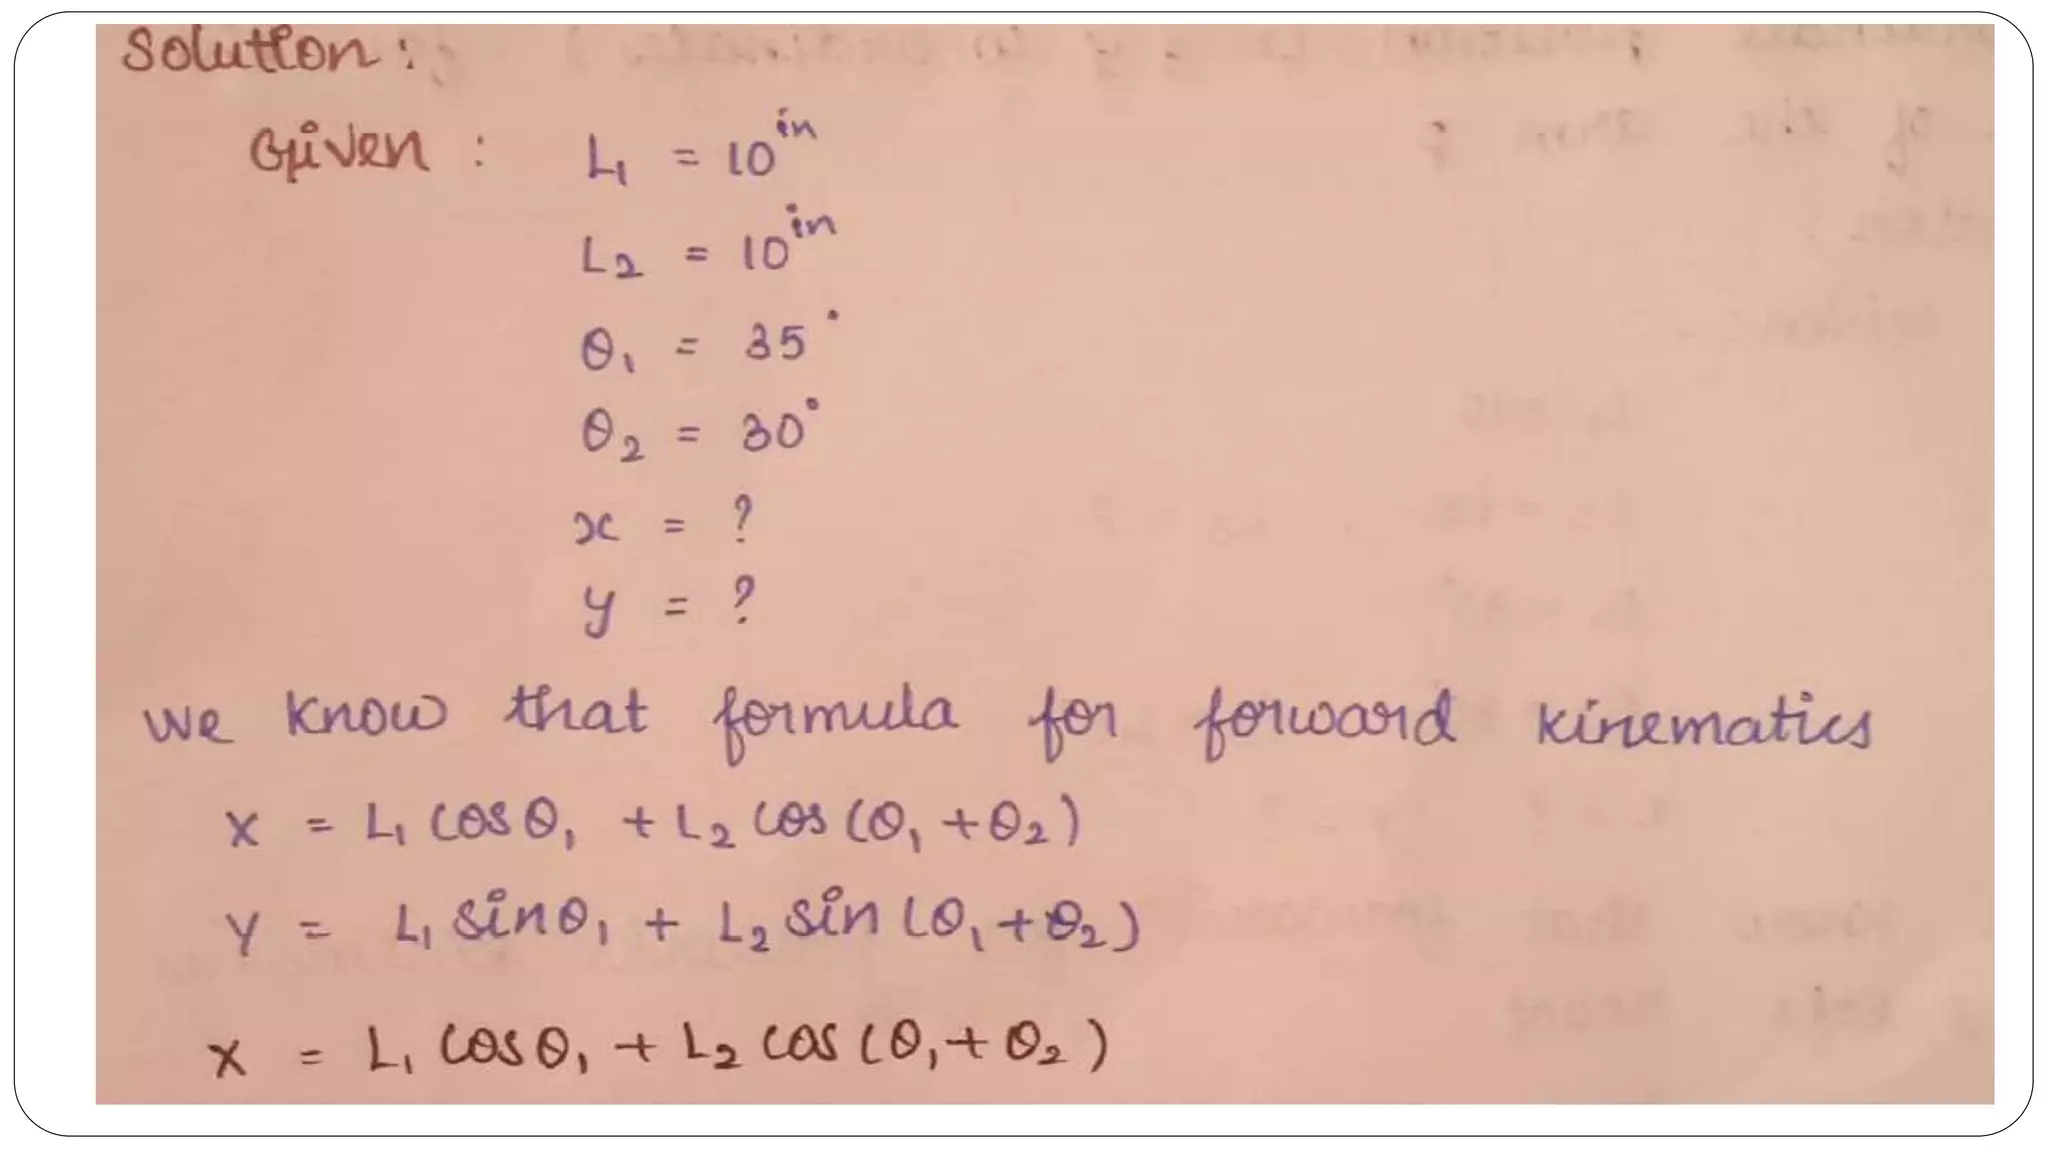 Solution:
Given : L₁ = 10 in
L₂ = 10 in
θ₁ = 35°
θ₂ = 30°
x = ?
y = ?
We know that formula for forward kinematics
x = L₁ cosθ₁ + L₂ cos (θ₁ + θ₂)
y = L₁ sinθ₁ + L₂ sin (θ₁ + θ₂)
x = L₁ cosθ₁ + L₂ cos (θ₁ + θ₂)